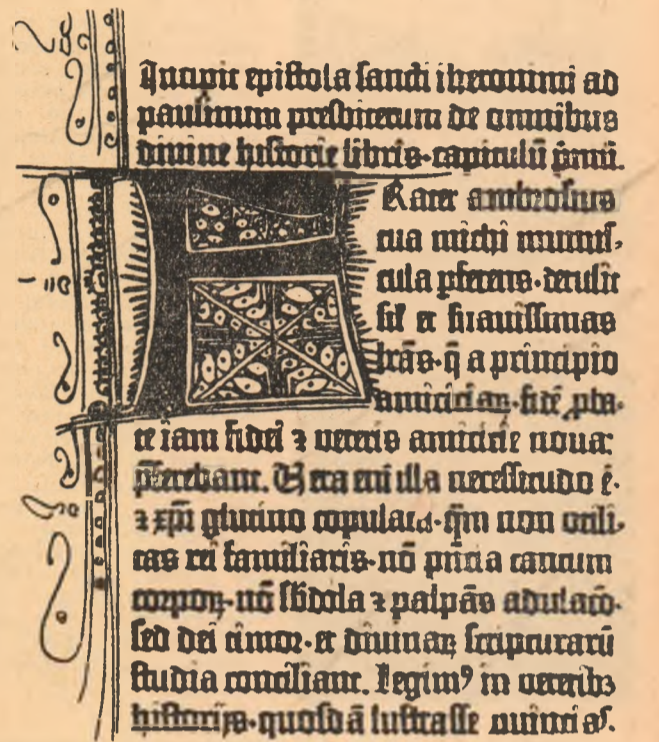 Incipit epistola sancti iheronimi ad
paulinum presbiterum de omnibus
divine historie libris·capitulũ p̃mũ.
Frater ambrosius
tua michi munus-
cula ꝑferens·detulit
sił et suauissimas
lr̃as·q̃ a principio
amicicia⁊·fidẽ ꝓba-
te iam fidei ⁊ veteris amicicie noua:
p̃ferebant. Vera eni illa necessitudo ẽ·
⁊ xp̃i glutino copulata·q̃m non utili-
tas rei familiaris·nõ pñcia tantum
corpoꝝ·nõ sḃdola ⁊ palpãs adulacõ-
sed dei timor·et diuinaꝝ scripturarũ
studia conciliant. Legimꝰ in veteribꝫ
historijs·quosdã lustrasse